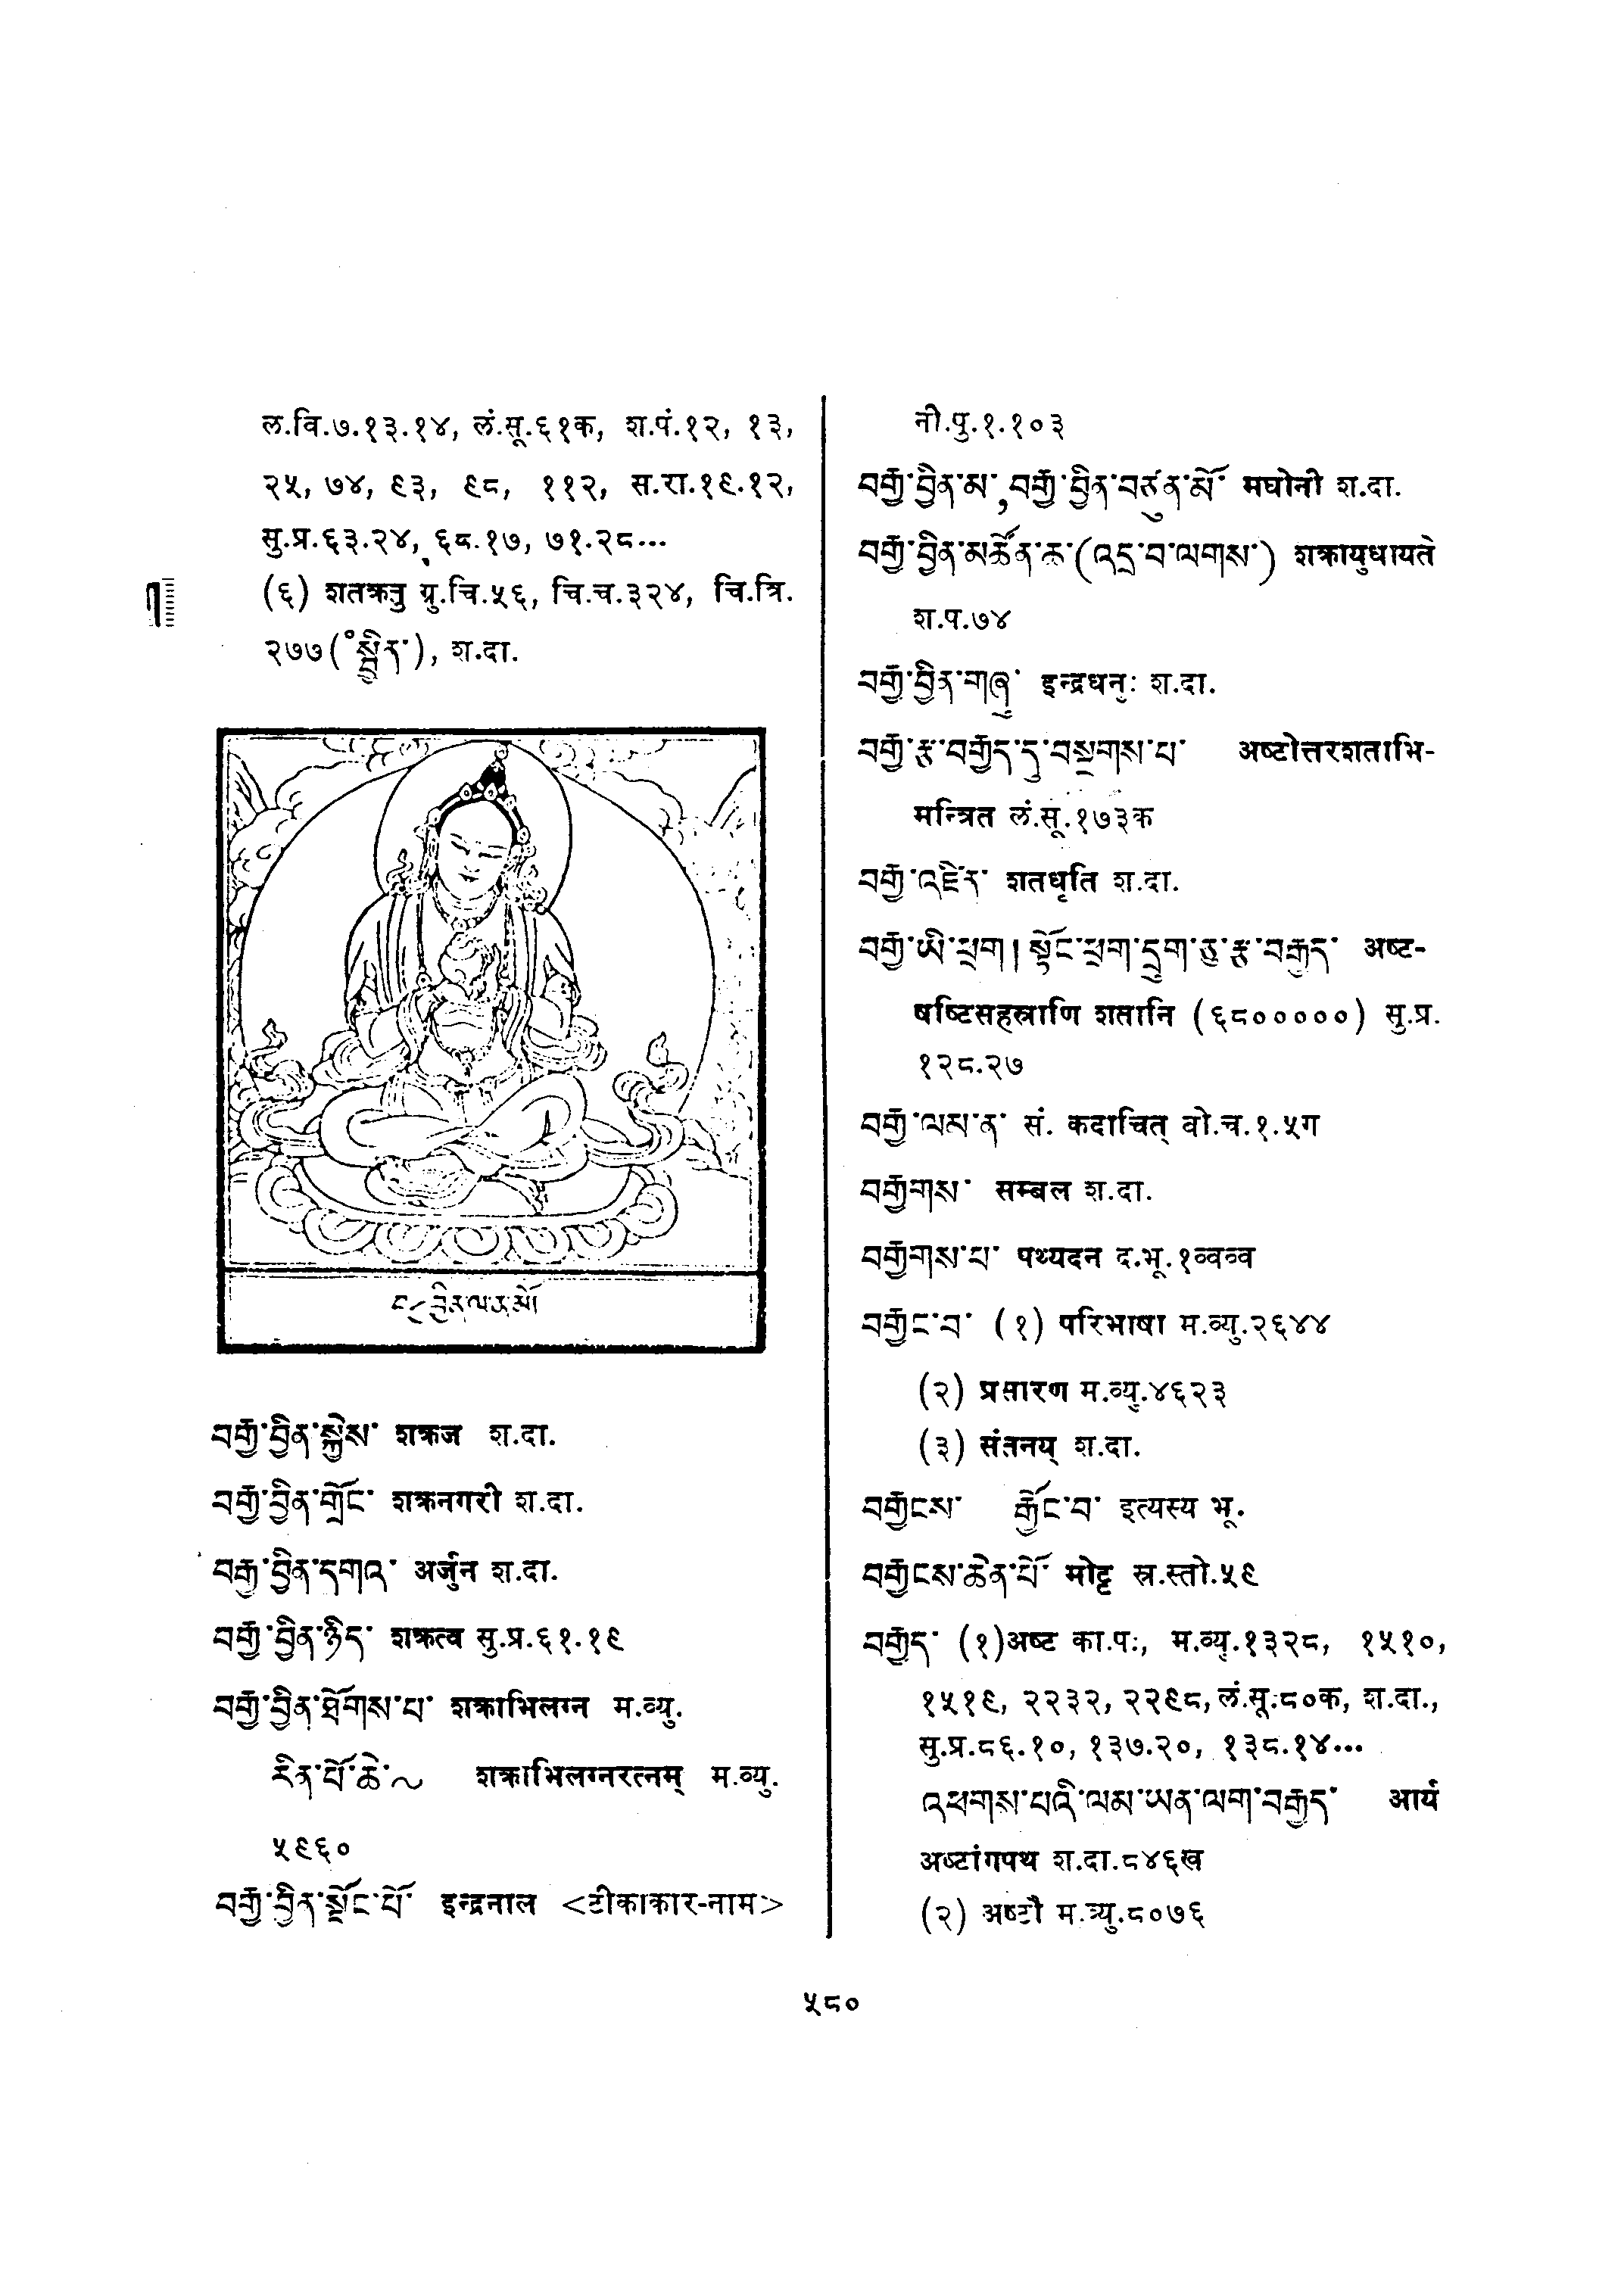 ल.वि.७.१३.१४, लं.सू.६१क, श.पं.१२, १३,
२५, ७४, ९३, ९८, ११२, स.रा.१९.१२,
सु.प्र.६३.२४, ६८.१७, ७१.२८...
(६) शतक्रतु गु.चि.५६, चि.च.३२४, चि.त्रि.
२७७(°སྦྱིན་), श.दा.
བརྒྱ་བྱིན་སྐྱེས་ शक्रज श.दा.
བརྒྱ་བྱིན་གྲོང་ शक्रनगरी श.दा.
བརྒྱ་བྱིན་དགའ་ अर्जुन श.दा.
བརྒྱ་བྱིན་ཉིད་ शक्रत्व सु.प्र.६१.१९
བརྒྱ་བྱིན་ཐོགས་པ་ शक्राभिलग्न म.व्यु.
རིན་པོ་ཆེ་~ शक्राभिलग्नरत्नम् म.व्यु.
५९६०
བརྒྱ་བྱིན་སྡོང་པོ་ इन्द्रनाल <टीकाकार-नाम>
नी.पु.१.१०३
བརྒྱ་བྱིན་མ་, བརྒྱ་བྱིན་བཙུན་མོ་ मघोनी श.दा.
བརྒྱ་བྱིན་མཚོན་ཆ་(འདྲ་བ་ལགས་) शक्रायुधायते
श.प.७४
བརྒྱ་བྱིན་གཞུ་ इन्द्रधनुः श.दा.
བརྒྱ་རྩ་བརྒྱད་དུ་བསྔགས་པ་ अष्टोत्तरशताभि-
मन्त्रित लं.सू.१७३क
བརྒྱ་འཛིན་ शतधृति श.दा.
བརྒྱ་ཡི་ཕྲག། སྟོང་ཕྲག་དྲུག་ཅུ་རྩ་བརྒྱད་ अष्ट-
षष्टिसहस्राणि शतानि (६८०००००) सु.प्र.
१२८.२७
བརྒྱ་ལམ་ན་ सं. कदाचित् बो.च.१.५ग
བརྒྱགས་ सम्बल श.दा.
བརྒྱགས་པ་ पथ्यदन द.भू.
བརྒྱང་བ་ (१) परिभाषा म.व्यु.२६४४
(२) प्रसारण म.व्यु.४६२३
(३) संतनय् श.दा.
བརྒྱངས་ རྒྱོང་བ་ इत्यस्य भू.
བརྒྱངས་ཆེན་པོ་ मोट्ट स्र.स्तो.५९
བརྒྱད་ (१)अष्ट का.प:, म.व्यु.१३२८, १५१०,
१५१९, २२३२, २२९८, लं.सू.८०क, श.दा.,
सु.प्र.८६.१०, १३७.२०, १३८.१४...
འཕགས་པའི་ལམ་ཡན་ལག་བརྒྱད་ आर्य
अष्टांगपथ श.दा.८४६ख
(२) अष्टौ म.व्यु.८०७६
५८०